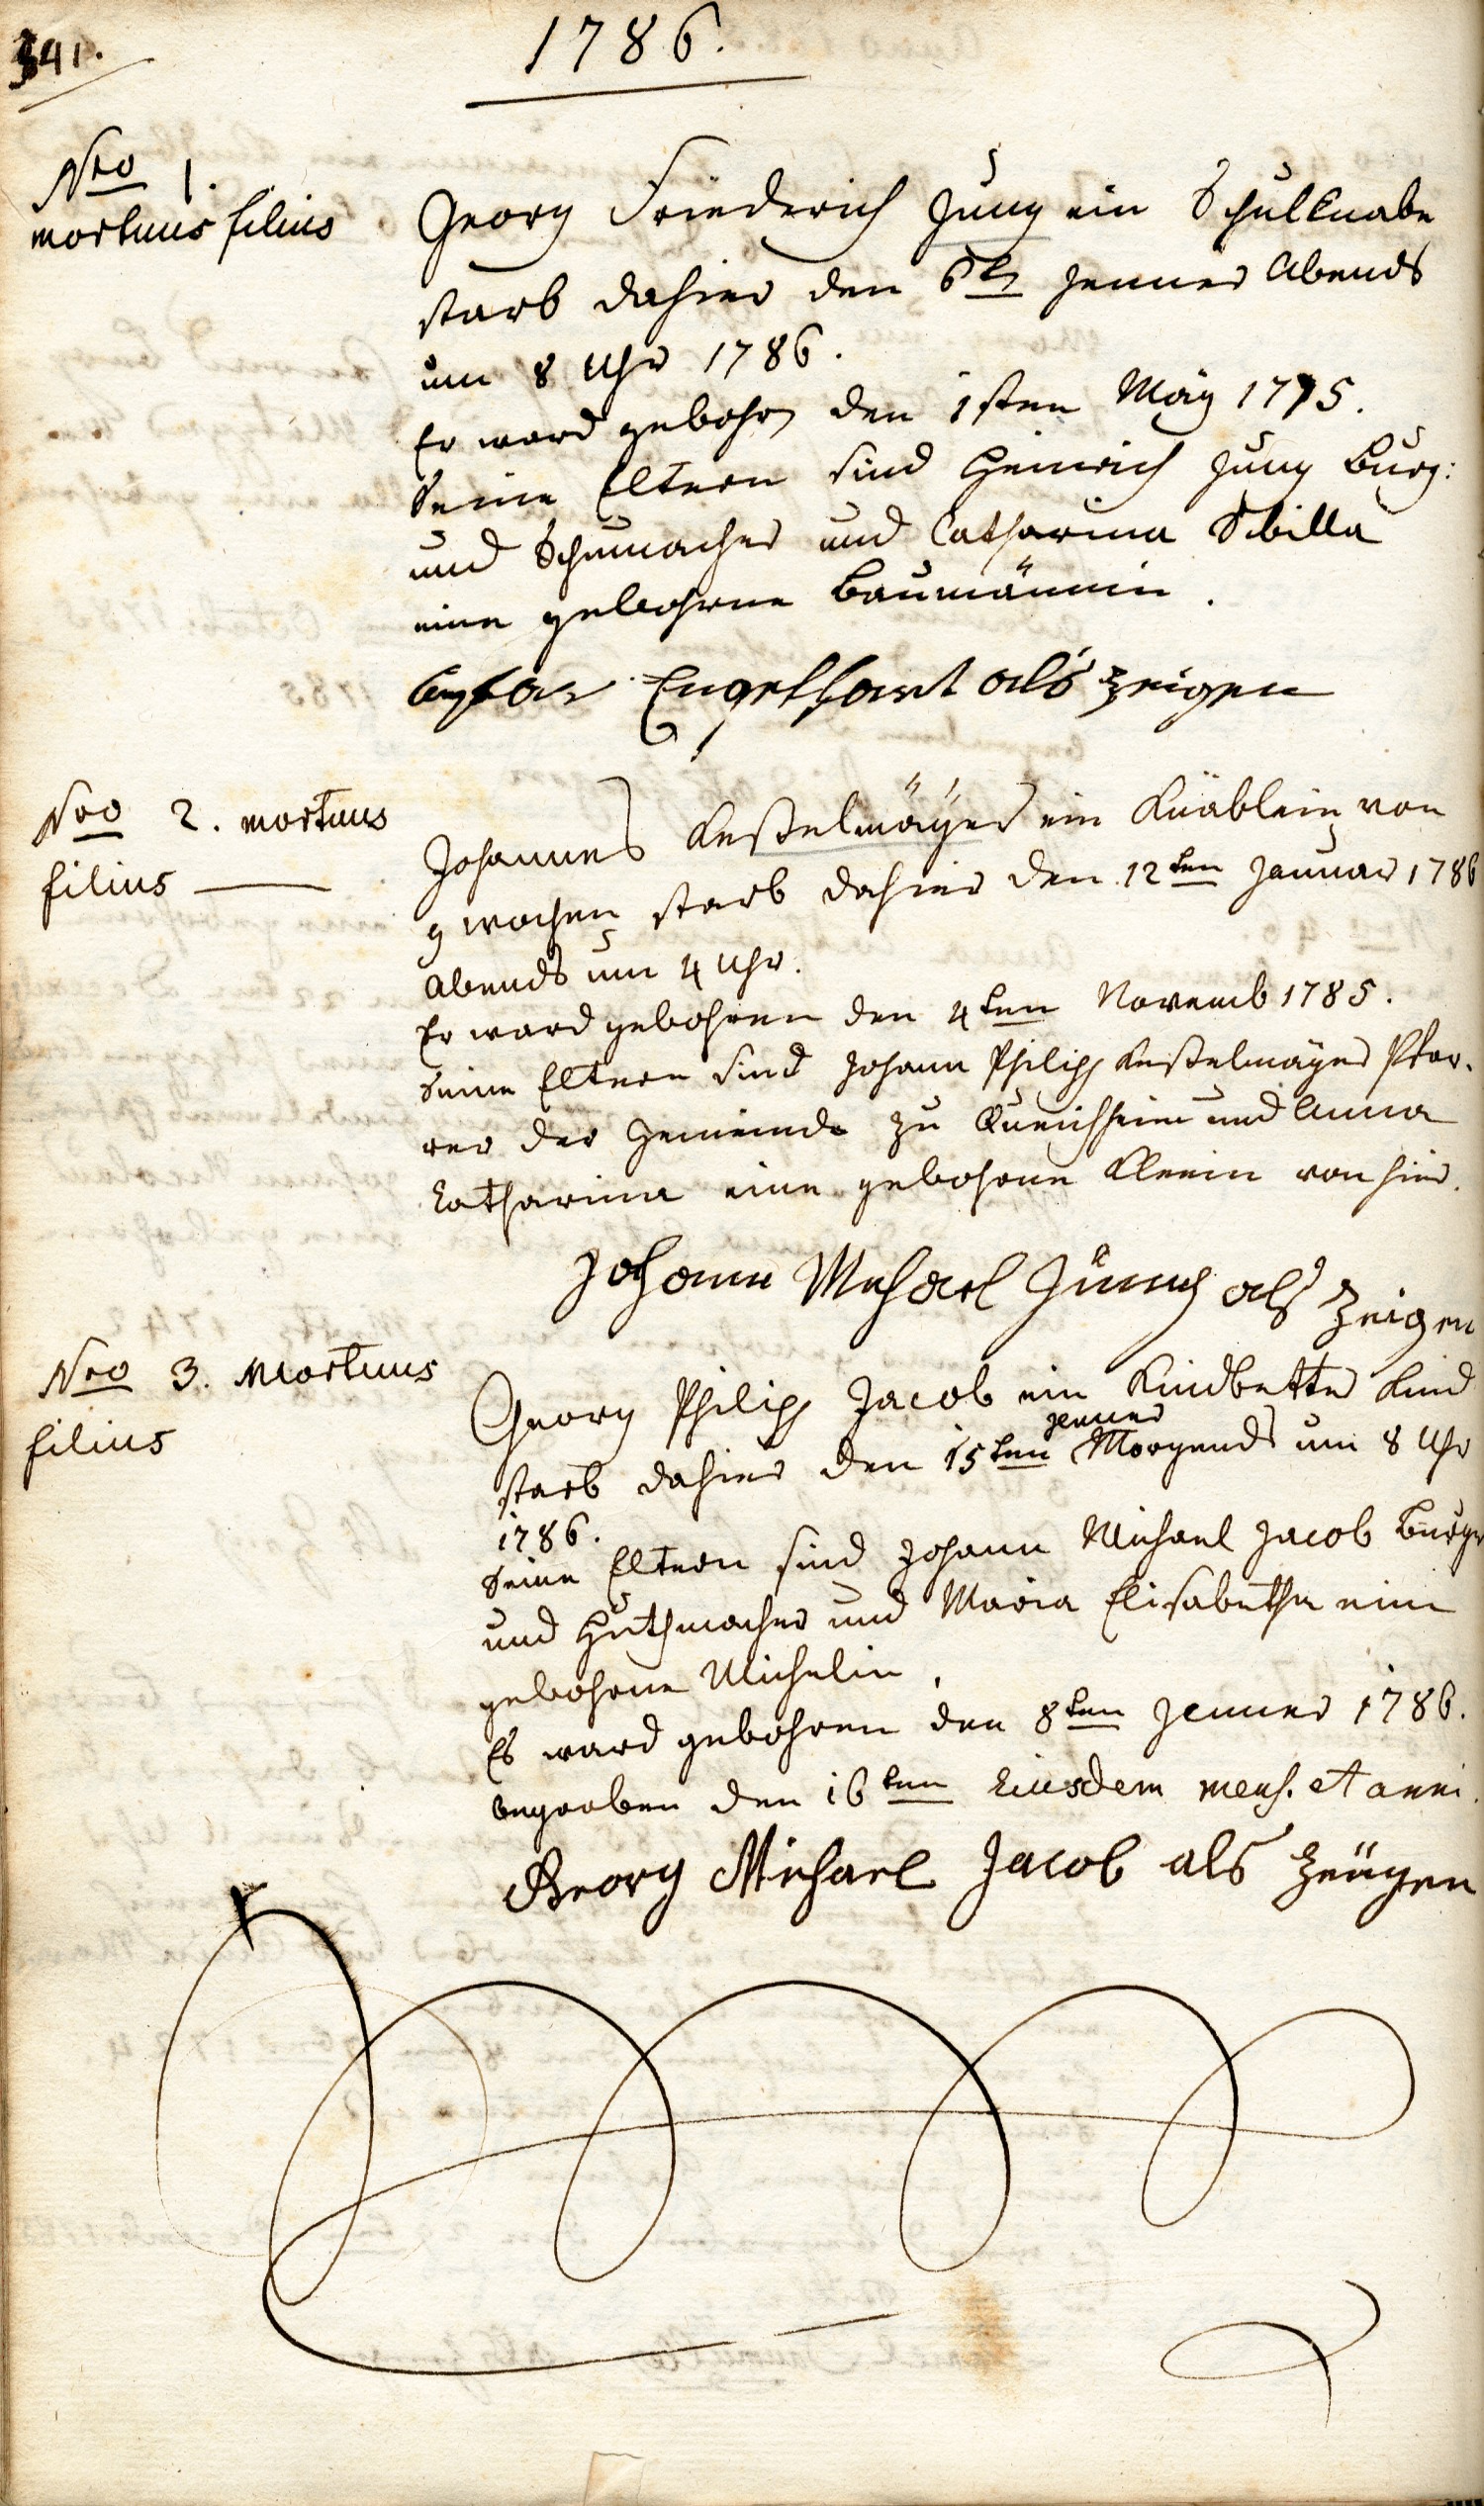 341.
1786.
Nro 1.
mortuus filius
Georg Friederich Jung ein Schulknabe
starb dahier den 6ten Jenner Abends
um 8 Uhr 1786.
Er ward gebohren den 1sten May 1775.
Seine Eltern sind Heinrich Jung Burg:
und Schumacher und Catharina Sibilla
eine gebohrne Baumännin.
Engelhart als zeigen
Nro 2. mortuus
filius
Johannes Keßelmäyer ein Knäblein von
9 wochen starb dahier den 12ten Januar 1786
Abends um 4 Uhr.
Er ward gebohren den 4ten Novemb 1785.
Seine Eltern sind Johann Philipp Keßelmäyer Pfar-
rer der Gemeinde zu Queichheim und Anna
Catharina eine gebohrne Kleein von hier.
Johann Michael als Zeigen
Nro 3. Mortuus
filius
Georg Philipp Jacob ein Kindbetter Kind
starb dahier den 15ten Jenner Morgends um 8 Uhr
1786.
Seine Eltern sind Johann Michael Jacob Burger
und Huthmacher und Maria Elisabetha eine
gebohrne Michelin.
Es ward gebohren den 8ten Jenner 1786.
begraben den 16ten Eiusdem mens. et anni.
Georg Michael Jacob als Zeügen